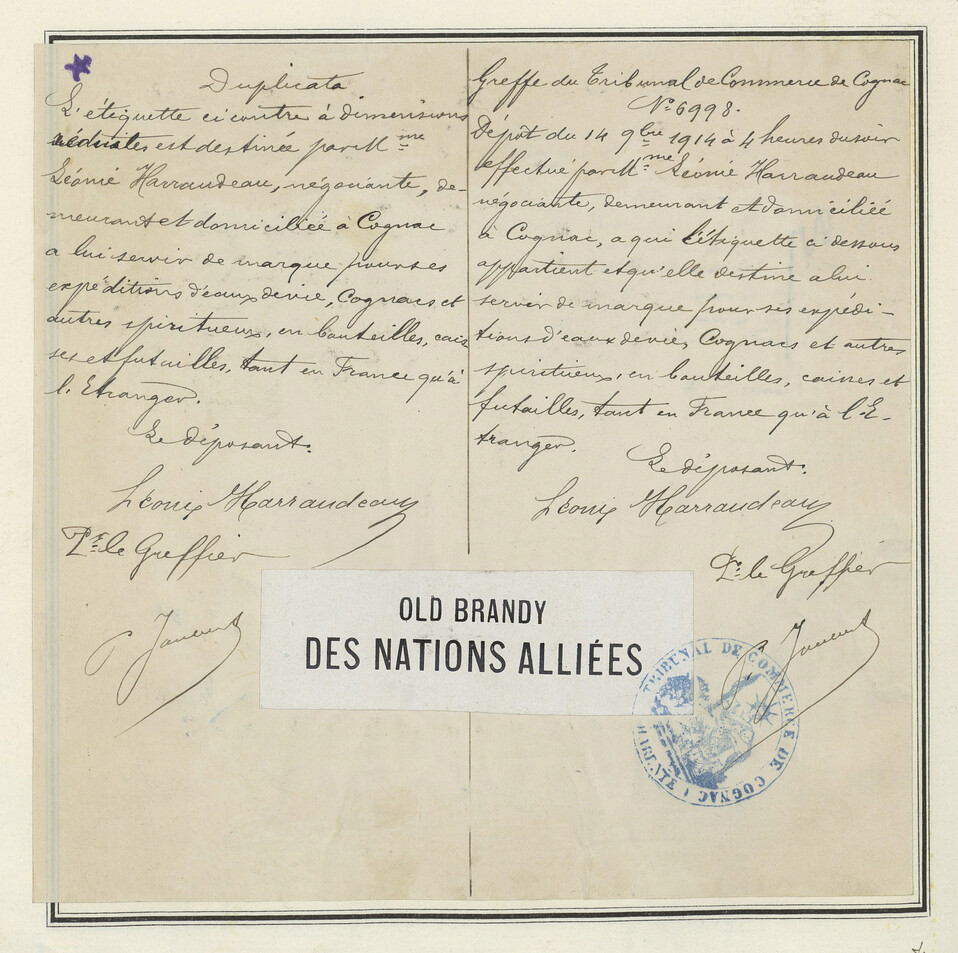 Duplicata
L'étiquette ci contre à dimensions
réduites est destinée par Mme
Léonie Harraudeau, négociante, de-
meurant et domiciliée à Cognac
a lui servir de marque pour ses
expéditions d'eaux de vie, Cognacs et
autres spiritueux, en bouteilles, cais
ses et futailles, tant en France qu'à
l'Etranger.
Le déposant.
Léonie Harraudeau
Pr. le Greffier
Greffe du Tribunal de Commerce de Cognac
No 6998.
Dépôt du 14 9bre 1914 à 4 heures du soir
effectué par Mme Léonie Harraudeau
négociante, demeurant et domiciliée
à Cognac, a qui l'étiquette ci dessous
appartient et qu'elle destine a lui
servir de marque pour ses expédi-
tions d'eaux de vie, Cognacs et autres
spiritueux, en bouteilles, caisses et
futailles, tant en France qu'à l'E-
tranger.
Le déposant.
Léonie Harraudeau
Pr. le Greffier
OLD BRANDY
DES NATIONS ALLIÉES
TRIBUNAL DE COMMERCE DE COGNAC (CHARENTE)